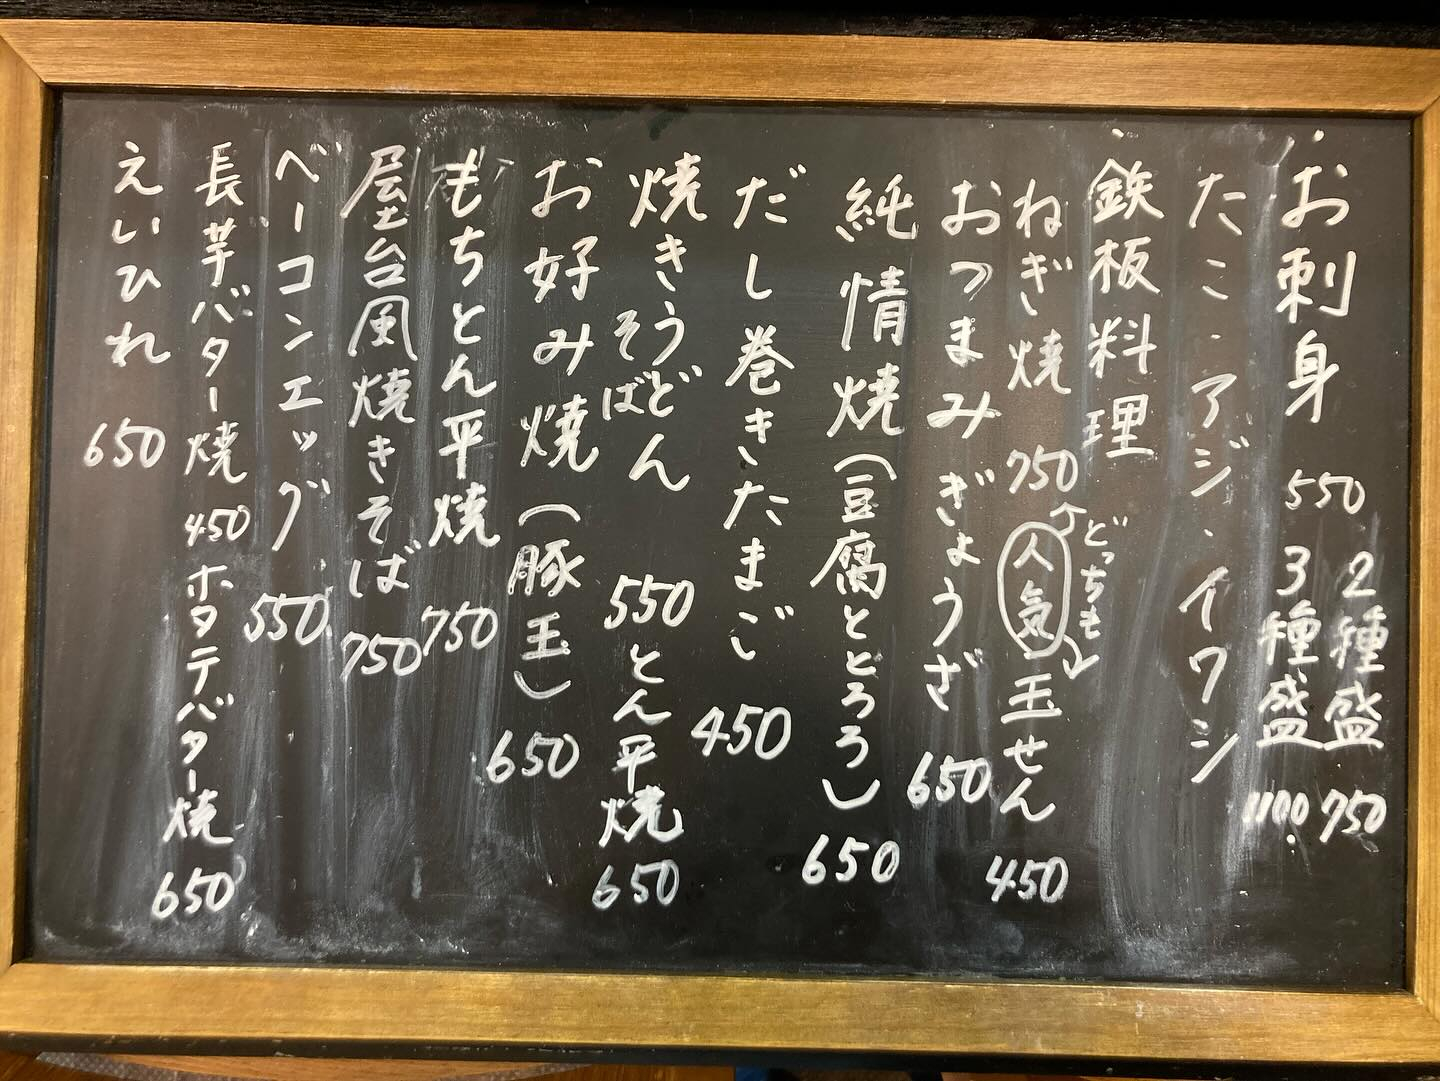 お刺身 550 2種盛 750
3種盛 1100
たこ・アジ・イワシ
鉄板料理
ねぎ焼 750 人気 玉せん 450
どっちも
おつまみぎょうざ 650
純情焼(豆腐ととろろ) 650
だし巻きたまご 450
焼きうどん 550 とん平焼 650
そば
お好み焼(豚玉) 650
もちとん平焼 750
屋台風焼きそば 750
ベーコンエッグ 550
長芋バター焼 450 ホタテバター焼 650
えいひれ 650